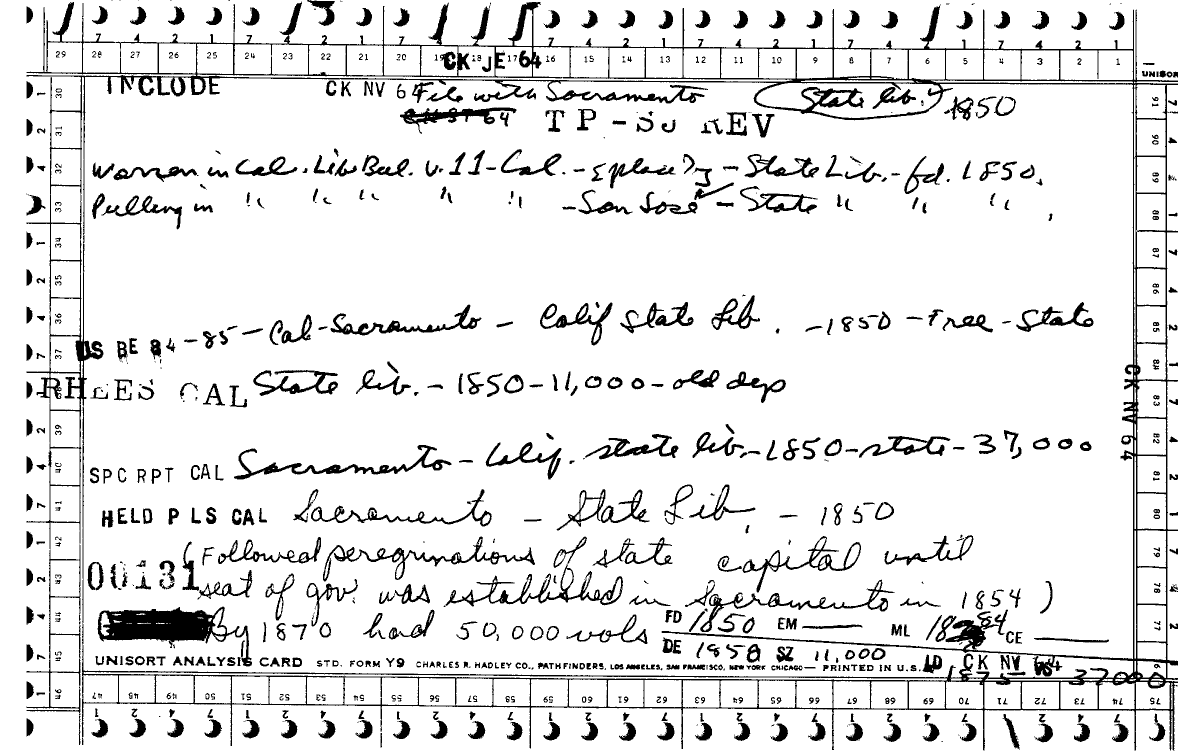 29 28 27 26 25 24 23 22 21 20 19 18 17 16 15 14 13 12 11 10 9 8 7 6 5 4 3 2 1
CK JE 64
UNISOR
INCLUDE CK NV 64 File with Sacramento State lib. 1850
TP-SJ REV
Warren in Cal. Lib Bul. v. 11-Cal. - State Lib. - fd. 1850.
Pulling in " " " " " - San Jose - State " " " .
US BE 84-85-Cal-Sacramento - Calif State Lib. -1850-Free-State
RHEES CAL State lib. - 1850-11,000-old dep
SPC RPT CAL Sacramento-Calif. state lib.-1850-state-37,000
HELD P LS CAL Sacramento - State Lib. - 1850
(Followed peregrinations of state capital until
00131 seat of gov. was established in Sacramento in 1854)
By 1870 had 50,000 vols FD 1850 EM ML CE
DE 1858 SZ 11,000 LD CK NV 64
UNISORT ANALYSIS CARD STD. FORM Y9 CHARLES R. HADLEY CO., PATHFINDERS, LOS ANGELES, SAN FRANCISCO, NEW YORK CHICAGO— PRINTED IN U.S.
1875 37000
CK NV 64
46 47 48 49 50 51 52 53 54 55 56 57 58 59 60 61 62 63 64 65 66 67 68 69 70 71 72 73 74 75